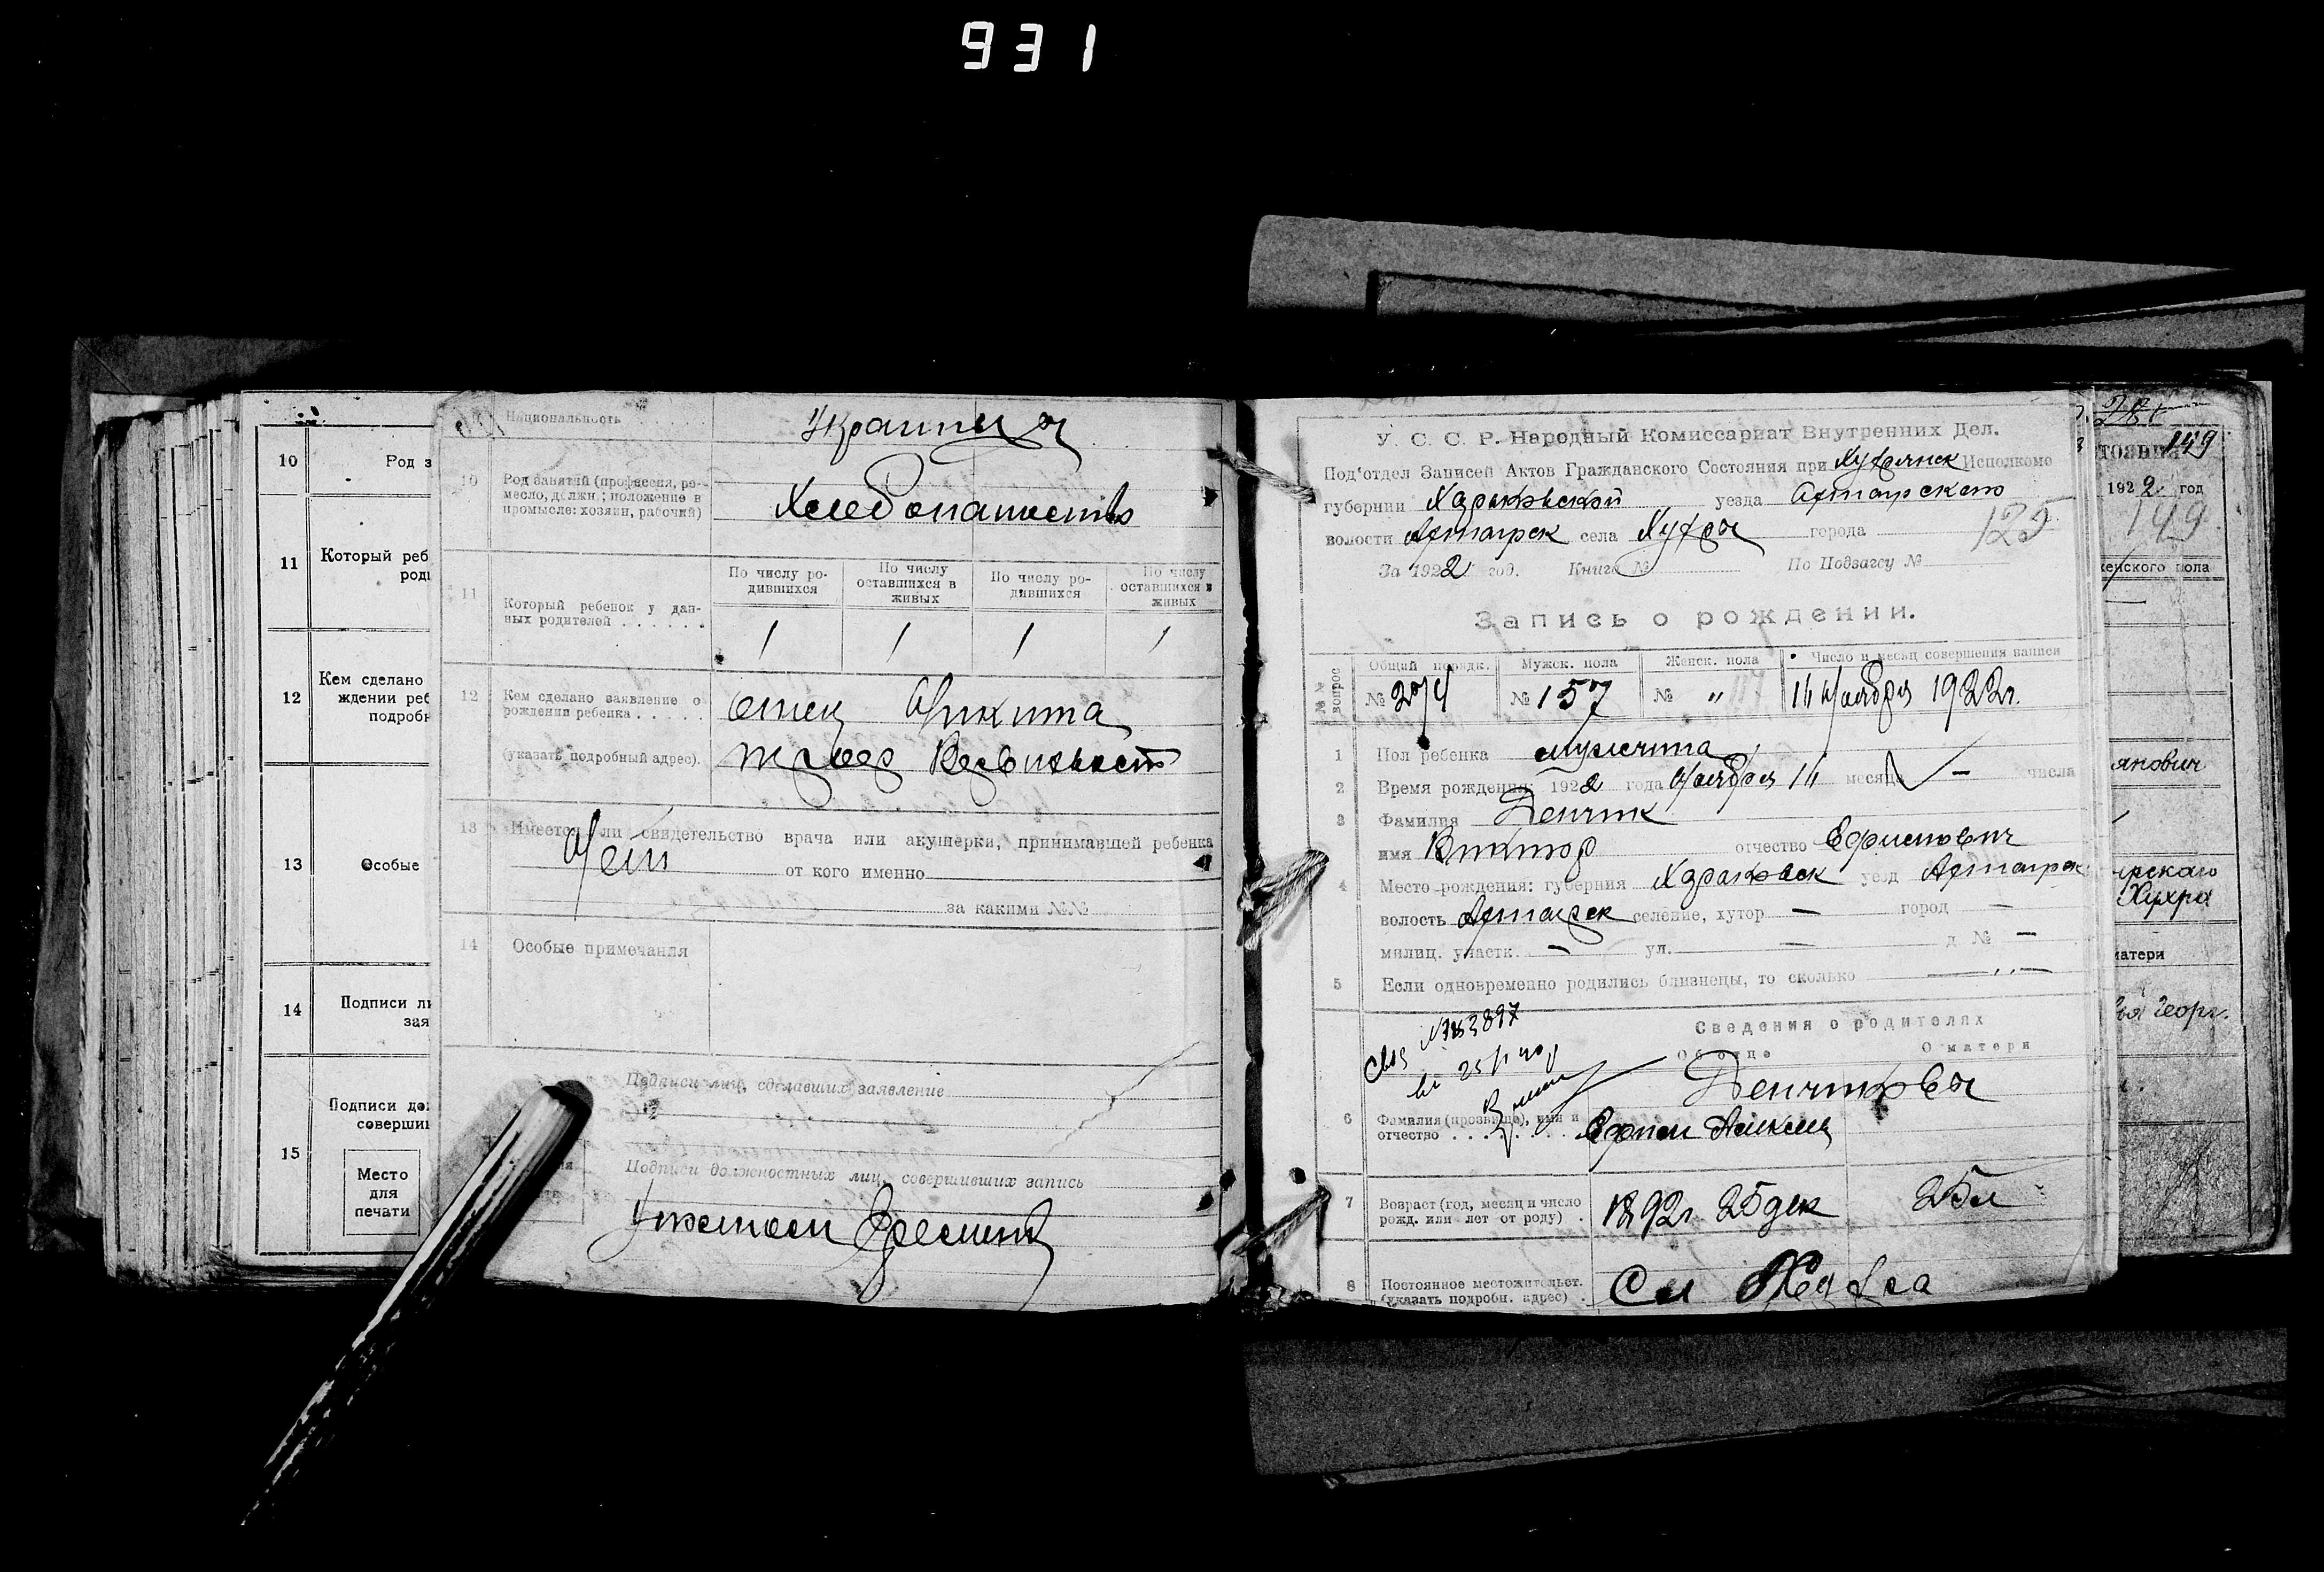 931
10
Род з
11
Который реб
роди
12
Кем сделано
ждении реб
подробн
13
Особые
14
Подписи ли
зая
15
Подписи дол
совершив
Место
для
печати
Национальность
Украинца
10
Род занятий (профессия, ре-
месло, должн.; положение в
промысле: хозяин, рабочий)
Хлебопашество
11
Который ребенок у дан-
ных родителей . . . . . .
По числу ро-
дившихся
По числу
оставшихся в
живых
По числу ро-
дившихся
По числу
оставшихся в
живых
1 1 1 1
12
Кем сделано заявление о
рождении ребенка . . . . .
(указать подробный адрес).
отец Никита
13
Имеется ли свидетельство врача или акушерки, принимавшей ребенка
Нет
от кого именно
за какими №№
14
Особые примечания
Подписи лиц, сделавших заявление
Подписи должностных лиц, совершивших запись
У. С. С. Р. Народный Комиссариат Внутренних Дел.
Под'отдел Записей Актов Гражданского Состояния при Хухрянск Исполкоме
губернии Харьковской уезда Ахтырского
волости Ахтырск села Хухра города
125
За 1922 год. Книга № По Подзагсу №
Запись о рождении.
№№ вопрос
Общий порядк. Мужск. пола Женск. пола Число и месяц совершения записи
№ 274 № 157 № " 14 Ноября 1922г.
1 Пол ребенка мужчина
2 Время рождения: 1922 года Ноября 14 месяца — числа
3 Фамилия Денчик
имя Виктор отчество Ефимович
4 Место рождения: губерния Харьковск уезд Ахтырск
волость Ахтырск селение, хутор — город —
милиц. участк. — ул. — д № —
5 Если одновременно родились близнецы, то сколько — „ —
Сведения о родителях
О б отце О матери
6
Фамилия (прозвище), имя и
отчество . . . . . . . .
Денчикова
Ефим Алексеев
7
Возраст (год, месяц и число
рожд. или лет от роду) .
1892г 25 дек
25л
8
Постоянное местожительст.
(указать подробн. адрес) .
Сл Хухра
281
149
тояния
1922 год
149
женского пола
янович
ырскаго
Хухра
матери
Геори.